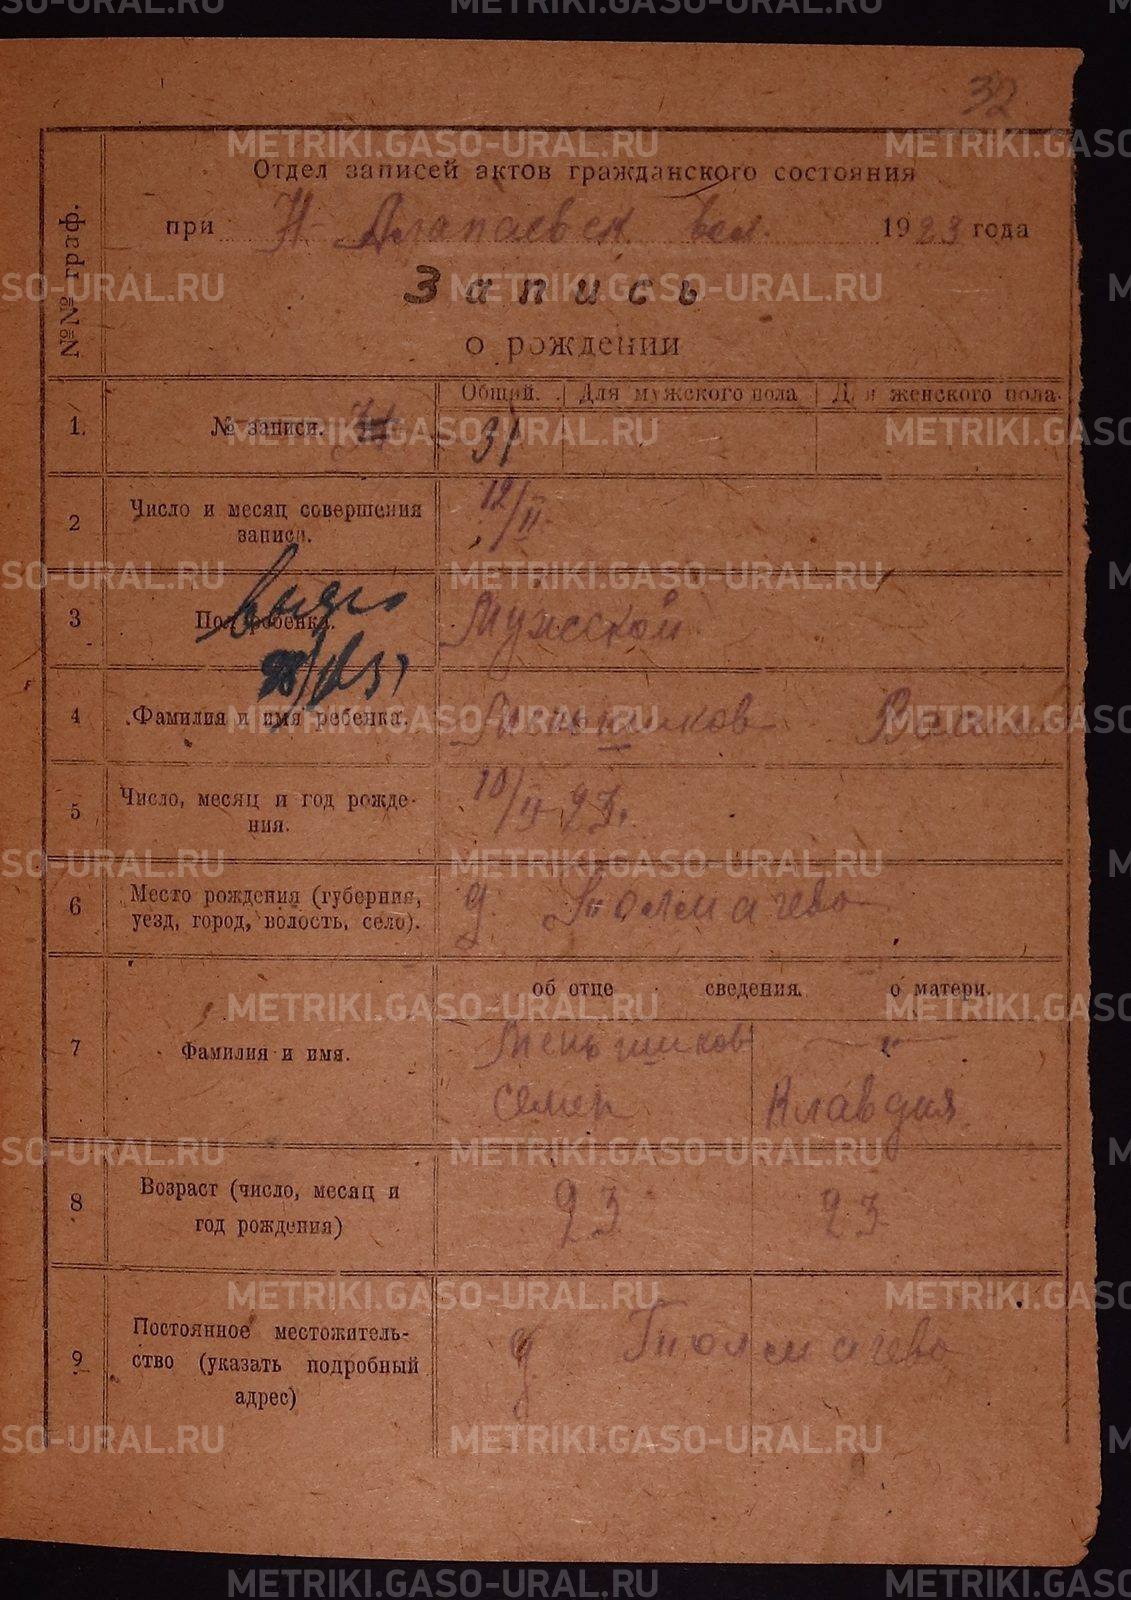 32
Отдел записей актов гражданского состояния
при Н-Алапаевск вол. 1923 года
Запись
о рождении
№№ граф.
Общий. Для мужского пола Для женского пола.
1. № записи. 31
2 Число и месяц совершения записи. 12/II
3 Пол ребенка. Мужской
4 Фамилия и имя ребенка. Меньшиков
5 Число, месяц и год рожде-
ния. 10/II 23.
6 Место рождения (губерния,
уезд, город, волость, село). д. Толмачево
об отце сведения. о матери.
7 Фамилия и имя. Меньшиков — " —
Семен Клавдия
8 Возраст (число, месяц и
год рождения) 23 23
9 Постоянное местожитель-
ство (указать подробный
адрес) д Толмачево
METRIKI.GASO-URAL.RU